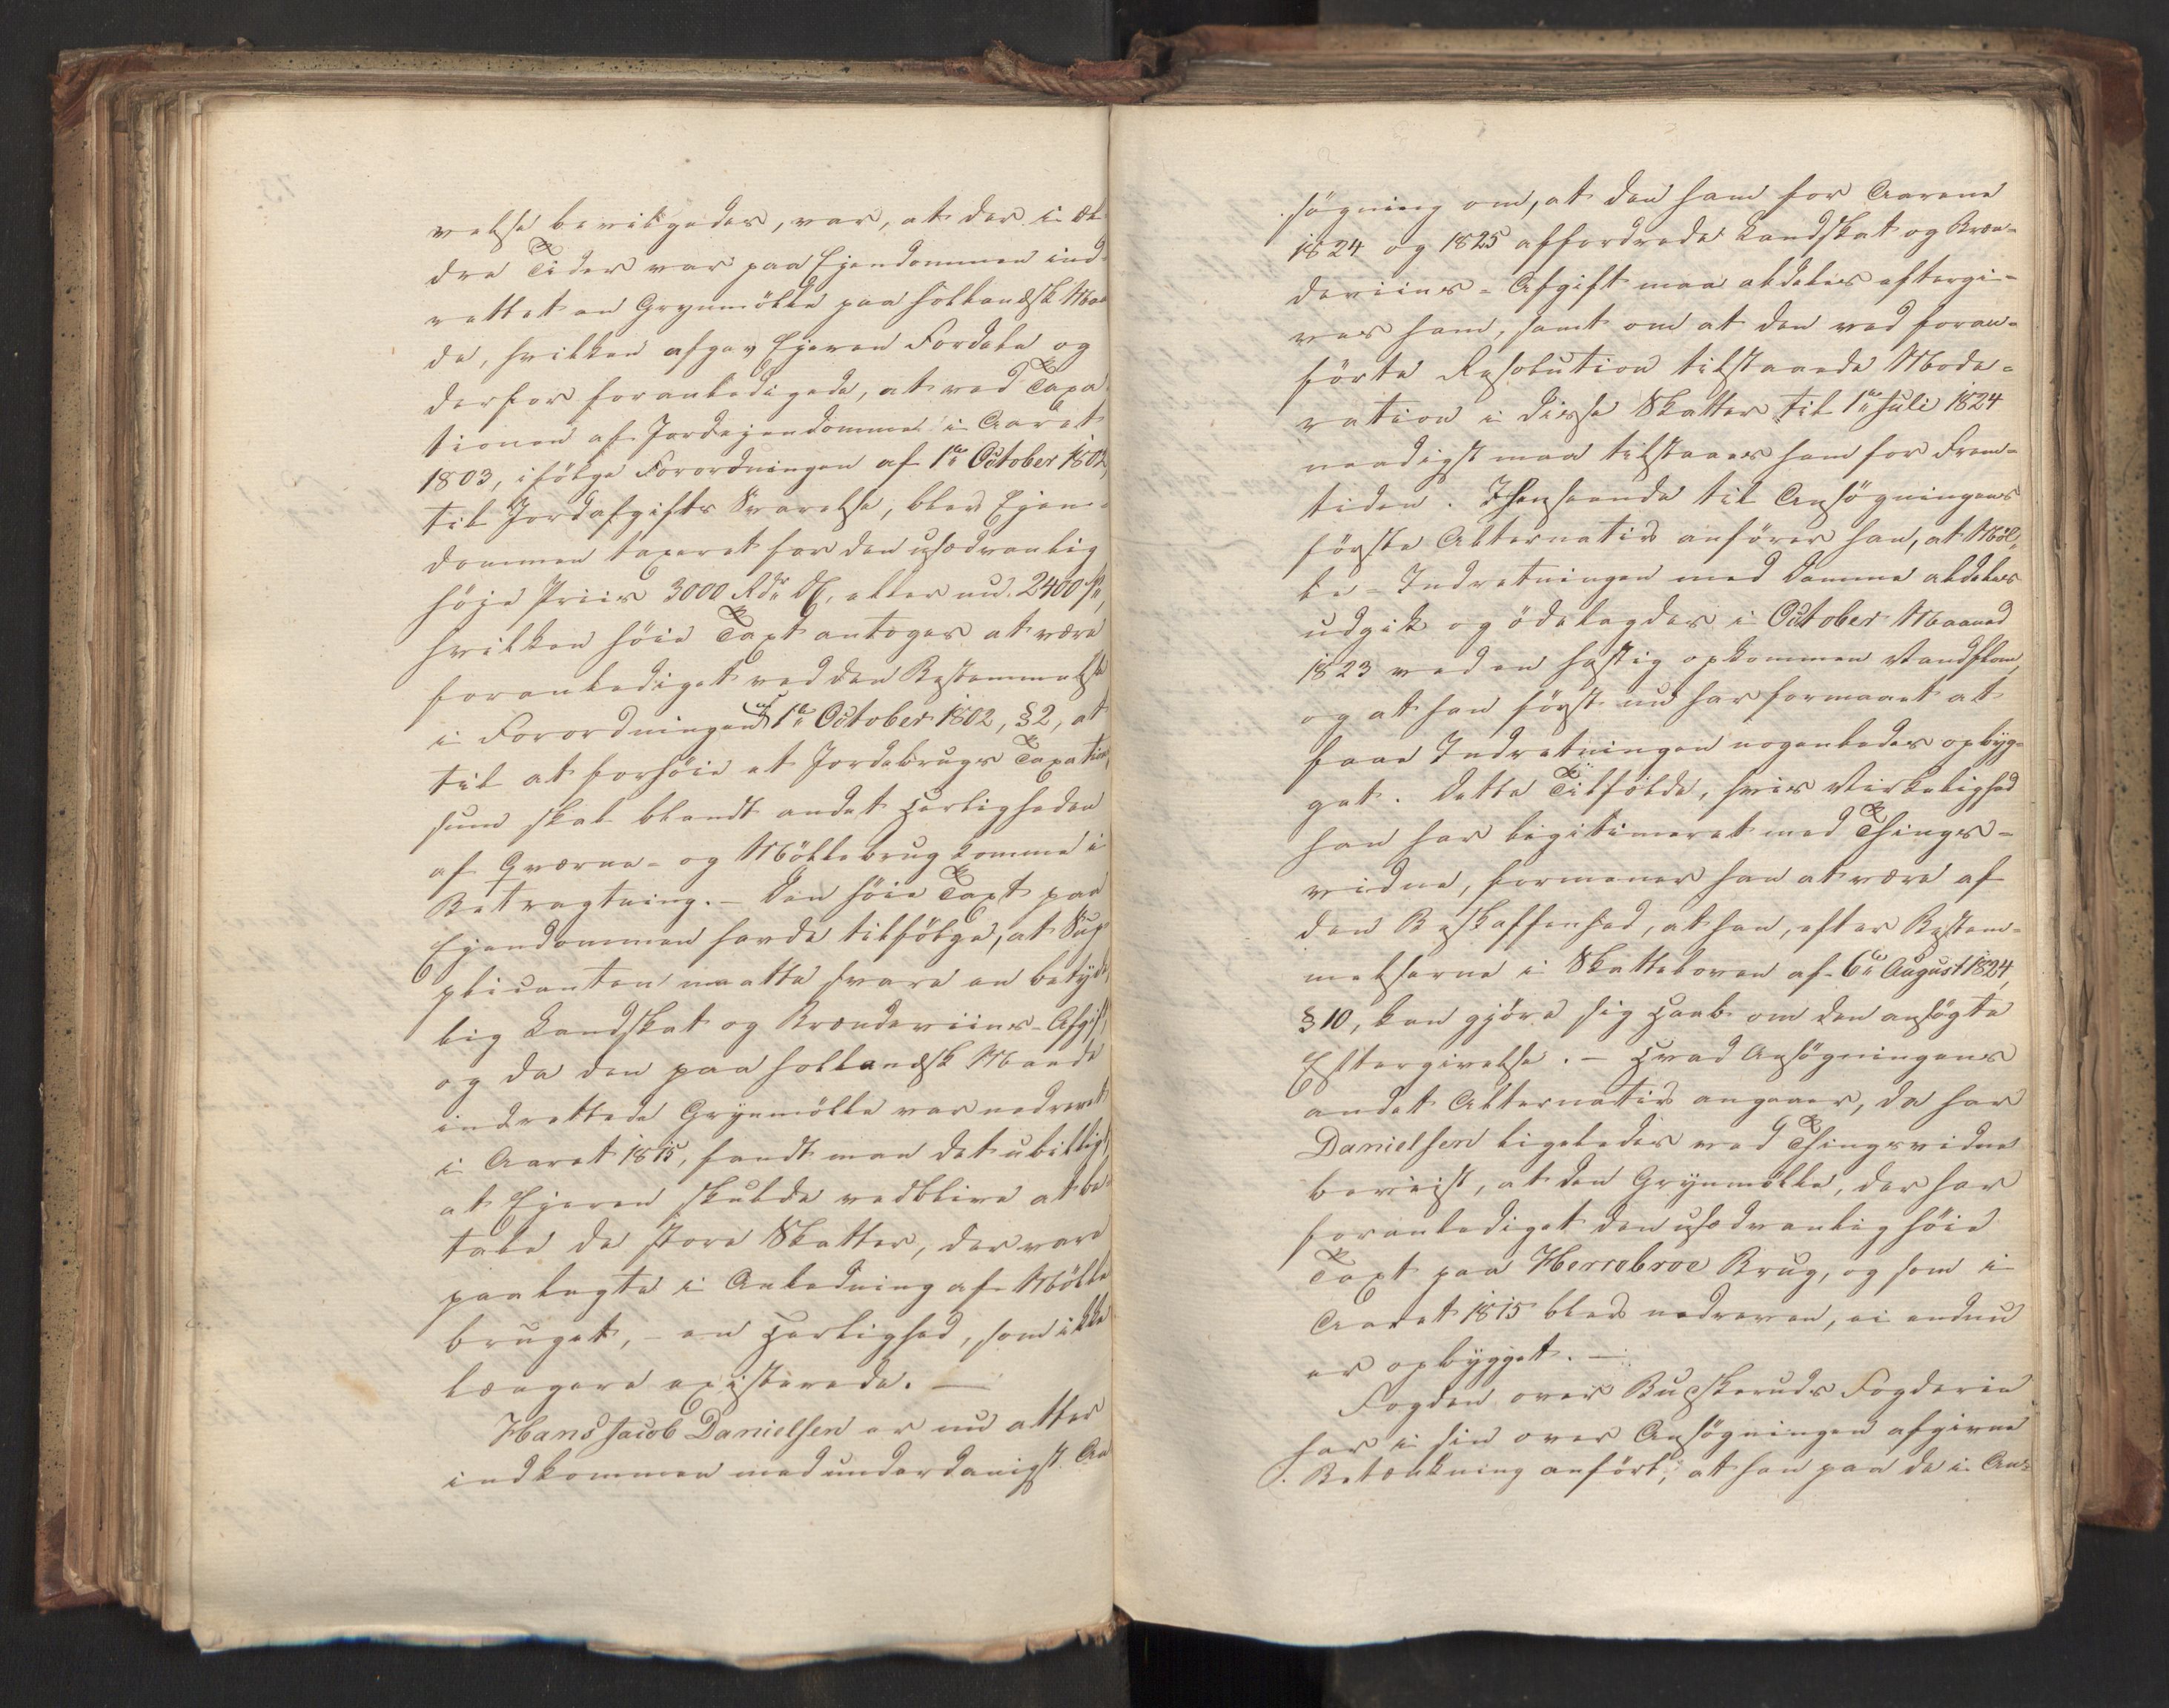 velse bevilgedes, var, at der i æl-
dre Tider var paa Ejendommen ind-
rettet en Grynmölle paa hollandsk Maa-
de, hvilken afgav Ejeren Fordele og
derfor foranledigede, at ved Taxa-
tionen af Jordejendomme i Aaret
1803, ifölge Forordningen af 1ste October 1802,
til Jordafgifts Svarelse, blev Ejen-
dommen taxeret for den usædvanlig
höje Priis 3000 Rdr DC, eller nu 2400 Sp.,
hvilken höie Taxt antoges at være
foranlediget ved den Bestemmelse
i Forordningen af 1ste October 1802, § 2, at
til at forhöie et Jordebrugs Taxations
sum skal blandt andet Herligheden
af Qværne- og Möllebrug komme i
Betragtning. – Den höie Taxt paa
Ejendommen havde tilfölge, at Sup-
plicanten maatte svare en betyde-
lig Landskat og Brændeviins-Afgift,
og da den paa hollandsk Maade
indrettede Grynmölle var nedrevet
i Aaret 1815, fandt man det ubilligt,
at Ejeren skulde vedblive at be-
tale de store Skatter, der vare
paalagte i Anledning af Mölle
bruget, – en Herlighed, som ikke
længere existerede. –
Hans Jacob Danielsen er nu atter
indkommen med underdanigst An
sögning om, at den ham for Aarene
1824 og 1825 affordrede Landskat og Bræn-
deviins-Afgift maa aldeles eftergi-
ves ham, samt om at den ved foran-
förte Resolution tilstaaede Mode-
ration i disse Skatter til 1ste Juli 1824
naadigst maa tilstaaes ham for Frem-
tiden. I Henseende til Ansögningens
förste Alternativ anförer han, at Möl-
le-Indretningen med Damme aldeles
udgik og ödelagdes i October Maaned
1823 ved en hastig opkommen Vandflom,
og at han först nu har formaaet at
faae Indretningen nogenledes opbyg-
get. Dette Tilfælde, hvis Virkelighed
han har legitimeret med Things-
vidne, formener han at være af
den Beskaffenhed, at han, efter Bestem-
melserne i Skatteloven af 6te August 1824,
§ 10, kan gjöre sig Haab om den ansögte
Eftergivelse. – Hvad Ansögningens
andet Alternativ angaaer, da har
Danielsen ligeledes ved Thingsvidne
beviist, at den Grynmölle, der har
foranlediget den usædvanlig höie
Taxt paa Herrebroe Brug, og som i
Aaret 1815 blev nedreven, ei endnu
er opbygget. –
Fogden over Buskeruds Fogderie
har i sin over Ansögningen afgivne
Betænkning anfört, at han paa de i An-